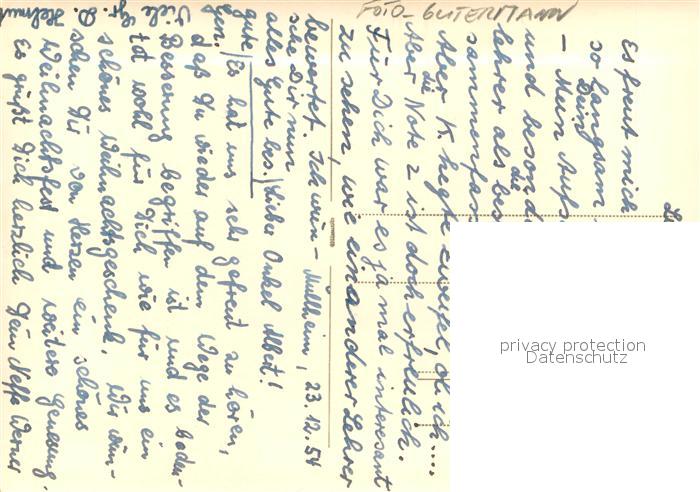 FOTO-GUTERMANN
Es freut mich
so langsam
Dein
- Mein Aufs
und besond
lehrer als bes
die
sammenfas
Aber K. hegte Zweifel, ob ich....
die
Aber Note 2 ist doch erfreulich.
Für Dich war es ja mal interessant
zu sehen, wie ein anderer Lehrer
bewertet. Ich wün-
sche Dir nun
alles Gute
gute
Müllheim, 23.12.54
Lieber Onkel Albert!
Es hat uns sehr gefreut zu hören,
daß Du wieder auf dem Wege der
Besserung begriffen ist und es bedeu-
tet wohl für Dich wie für uns ein
schönes Weihnachtsgeschenk. Wir wün-
schen Dir von Herzen ein schönes
Weihnachtsfest und weitere Genesung.
Es grüßt Dich herzlich Dein Neffe Werner
Viele Gr. D. Helmut
privacy protection
Datenschutz